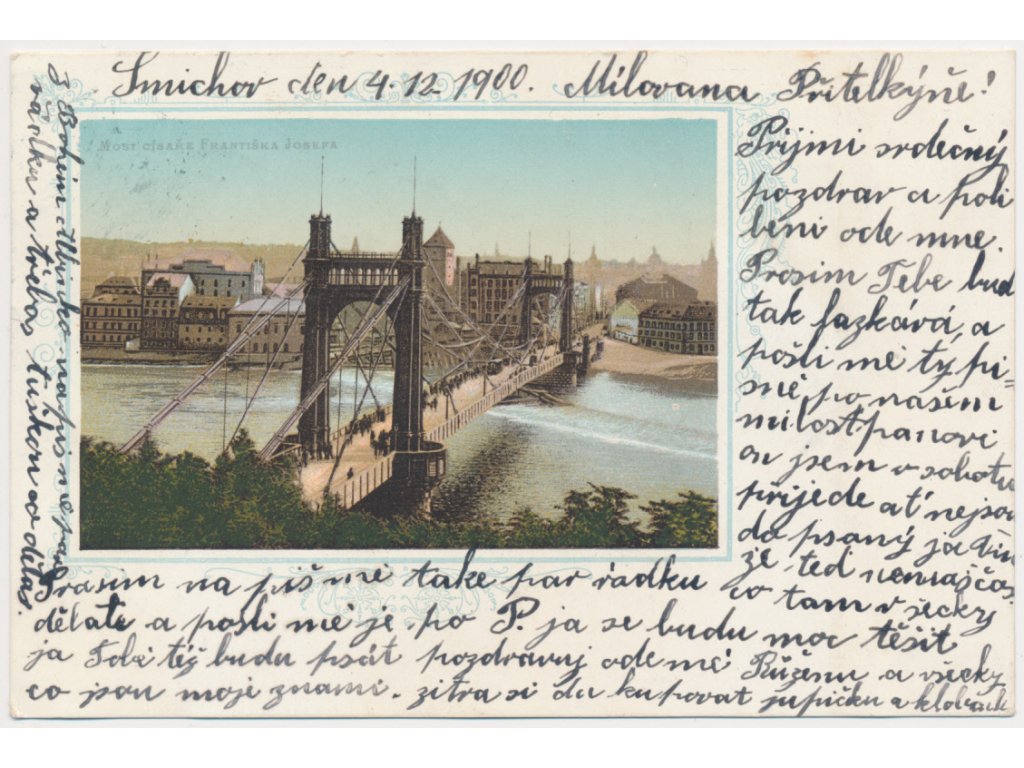 Smichov den 4.12 1900. Milovana Přitelkýně!
MOST CÍSAŘE FRANTIŠKA JOSEFA
Prijmi srdečný
pozdrav a poli
beni ode mne.
Prosim Tebe bud
tak lazkává, a
pošli mé ty pi=
smé, po našem
milostpanovi
on jsem v sobotu
prijede ať nejsou
do psaný ja vím
že ted nemaj čas
co tam všecky
Prasim na pišmé take par řadku
dělate a posli mé je po P. ja se budu moc těšit
ja Tobě též budu psát pozdravuj ode mé Růženu a všecky
co jsou moje znami. zitra si du kupovat jupičku a klobouk
S Bohem Minko napis mě psaní
načilku a třebas tuškou co dělas